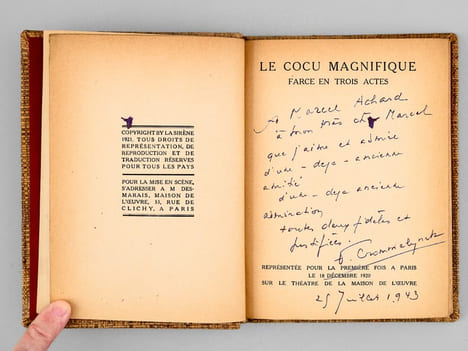 COPYRIGHT BY LA SIRÈNE
1921. TOUS DROITS DE
REPRÉSENTATION, DE
REPRODUCTION ET DE
TRADUCTION RÉSERVES
POUR TOUS LES PAYS
POUR LA MISE EN SCÈNE,
S'ADRESSER A M DES-
MARAIS, MAISON DE
L'ŒUVRE, 55, RUE DE
CLICHY, A PARIS
LE COCU MAGNIFIQUE
FARCE EN TROIS ACTES
A Marcel Achard
à mon très cher Marcel
que j'aime et admire
d'une - déjà - ancienne
amitié
d'une - déjà ancienne
admiration,
toutes deux fidèles et
justifiées.
F. Crommelynck
REPRÉSENTÉE POUR LA PREMIÈRE FOIS A PARIS
LE 18 DÉCEMBRE 1920
SUR LE THÉATRE DE LA MAISON DE L'ŒUVRE
25 Juillet 1943